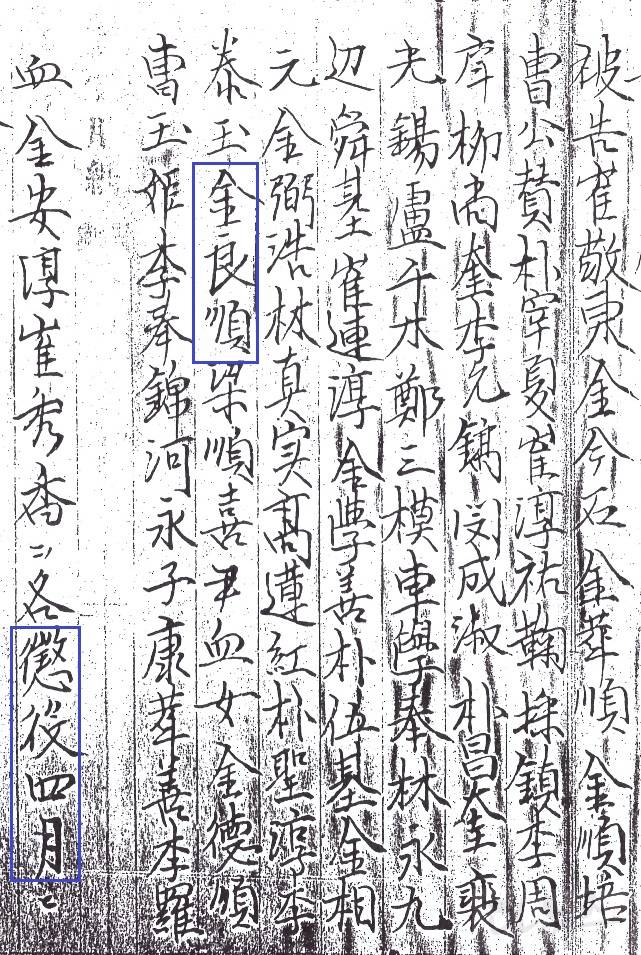 被告崔敬東金今石金華順金順培
曹公贊朴宰夏崔淳祐鞠採鎮李周
彦柳尚奎李允鎬閔成淑朴昌奎裵
光錫盧千木鄭三模車學奉林永九
辺舜基崔連淳金學善朴伍基金相
元金弼浩林真实高蓮紅朴聖淳李
泰玉金良順梁順喜尹血女金德順
曹玉姫李奉錦河永子康華善李羅
血金安淳崔秀香ニ各懲役四月ニ